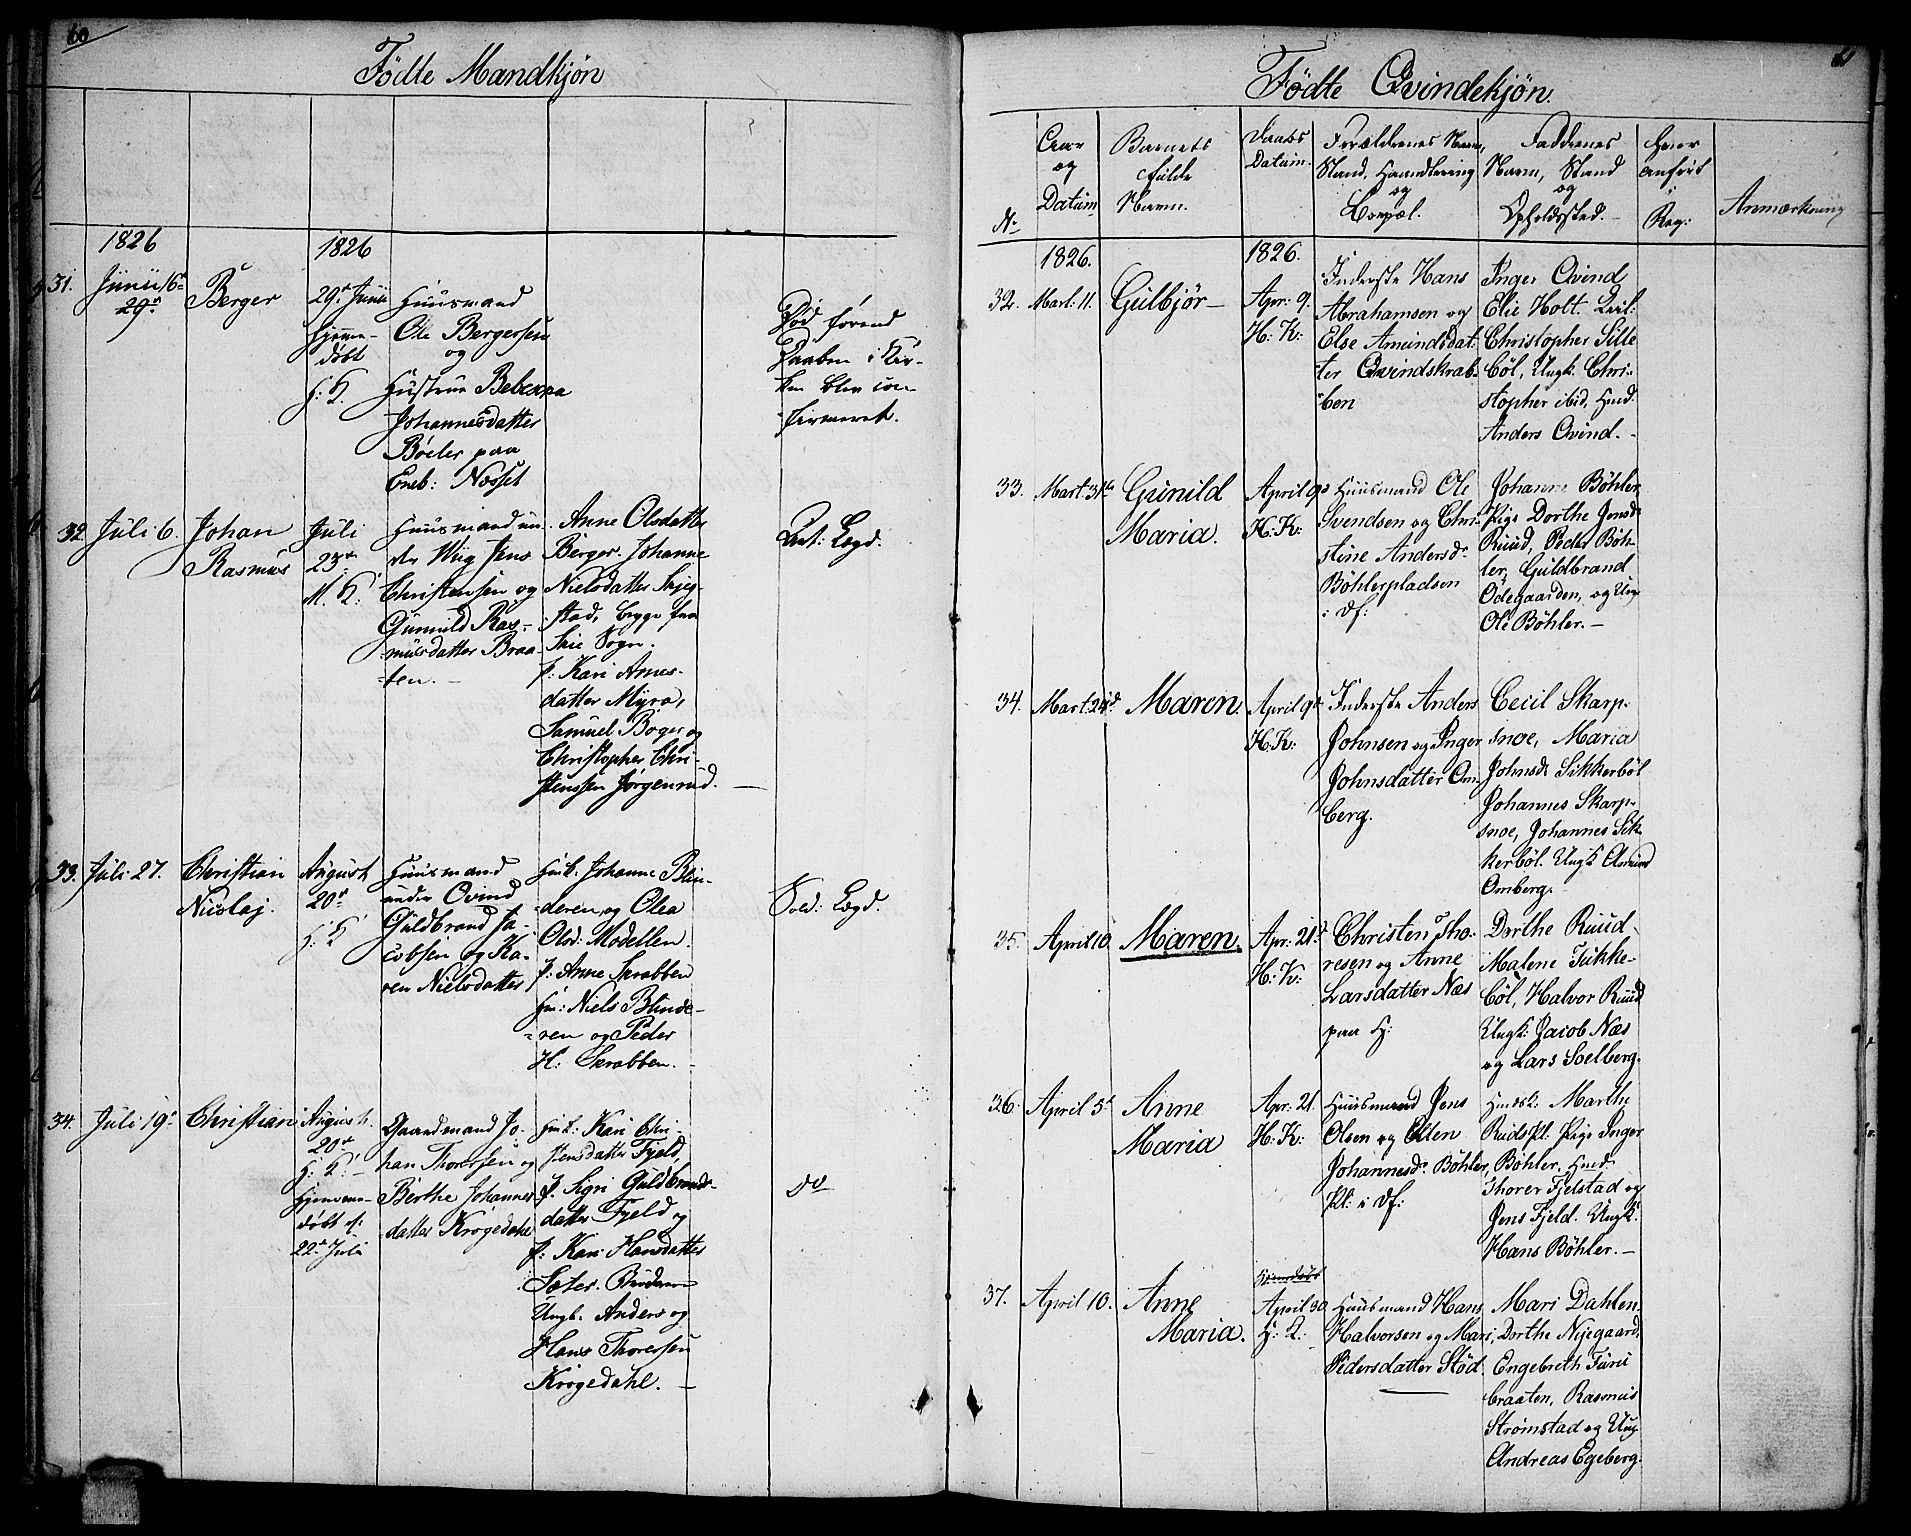 60
Fødte Mandkjøn
1826
1826
31.
Junii 16de
29de
Berger
29de Junii
hjemme-
døbt
H: K.
Huusmand
Ole Bergersen
og
Hustrue Bebekka
Johannesdatter
Bøeler paa
Eneb: Næsset
Død førend
Daaben i Kir-
ken blev con-
firmeret.
32.
Juli 6.
Johan
Rasmus
Juli
23de
M. K:
Huusmand un-
der Wiig Jens
Christensen og
Gunnild Ras-
musdatter Braa-
ten.
Anne Olsdatter
Berger. Johanne
Nielsdatter Skjeg-
stad, begge fra
Skie Sogn.
p: Kari Arnes-
datter Myra,
Samuel Boger og
Christopher Chri-
stenssen Jørgenrud.
Ant: Lægd.
33.
Juli 27.
Christian
Nicolaj.
August
20de
H: K
Huusmand
under Qvind
Guldbrand Ja-
cobsen og Ka-
ren Nielsdatter
Hmk. Johanne Blin-
deren, og Olea
Olsd: Modellen.
p: Anne Skrabben
Hm: Niels Blinde-
ren og Peder
H: Skrabben.
Sold: Lægd.
34.
Juli 19de
Christian
August
20de
H: K:
Hjemme-
døbt d:
22de Juli
Gaardmand Jo-
han Thoresen og
Berthe Johannes
datter Krogedahl
Hmk: Kari Chri-
stensdatter Fjeld,
p. Sigri Guldbrands-
datter Fjeld og
p: Kari Hansdatter
Sæter.
Ungk. Anders og
Hans Thoresen
Krogedahl.
Do
61
Fødte Qvindekjøn.
No
Aar
og
Datum
Barnets
fulde
Navn.
Daabs
Datum.
Forældrenes Navn,
Stand, Haandtering
og
Boepæl.
Faddernes
Navn, Stand
og
Opholdssted.
Hvor
anført
Reg:
Anmærkning
1826.
1826.
32.
Mart: 11.
Gulbjør
Apr: 9.
H: K:
Inderste Hans
Abrahamsen og
Else Amundsdat-
ter Qvindskrab-
ben
Inger Qvind
Elie Holt.
Christopher Sikke
bøl, Ungk: Chri-
stopher ibid, Hmd.
Anders Qvind.
33.
Mart: 31te
Gunild
Maria.
April 9de
H. K:
Huusmand Ole
Svendsen og Chri-
stine Andersdr
Böhlerpladsen
i Df:
Johanne Böhler
Pige Dorthe Jensdr
Ruud, Peder Böh-
ler, Guldbrand
Ödegaarden, og Ung
Ole Böhler.
34.
Mart. 24d.
Maren.
April 9d.
H: K:
Inderste Anders
Johnsen og Inger
Johnsdatter Om-
berg.
Cecil Skarp-
snoe, Maria
Johnsdr Sikkerböl
Johannes Skarp-
snoe, Johannes Sik-
kerböl. Ungk Amund
Omberg.
35.
April 10.
Maren.
Apr: 21d.
H: K:
Christen Tho-
resen og Anne
Larsdatter Næs
paa H:
Dorthe Ruud
Malene Sikke-
böl, Halvor Ruud
Ungk: Jacob Næs
og Lars Soelberg.
36.
April 5te
Anne
Maria
Apr: 21.
H. K:
Huusmand Jens
Olsen og Ellen
Johannesd: Böhler
Pl: i Df:
Hmdsk: Marthe
Rudspl. Pige Inger
Böhler. Hmd.
Thorer Fjelstad og
Jens Fjeld. Ungk:
Hans Böhler.
37.
April 10.
Anne
Maria.
Hjemdøbt
April 30
H: K:
Huusmand Hans
Halvorsen og Mari
Pedersdatter Stöd.
Mari Dahlen.
Dorthe Nyegaard,
Engebreth Furu
braaten, Rasmus
Strömstad og Ung
Andreas Egeberg.